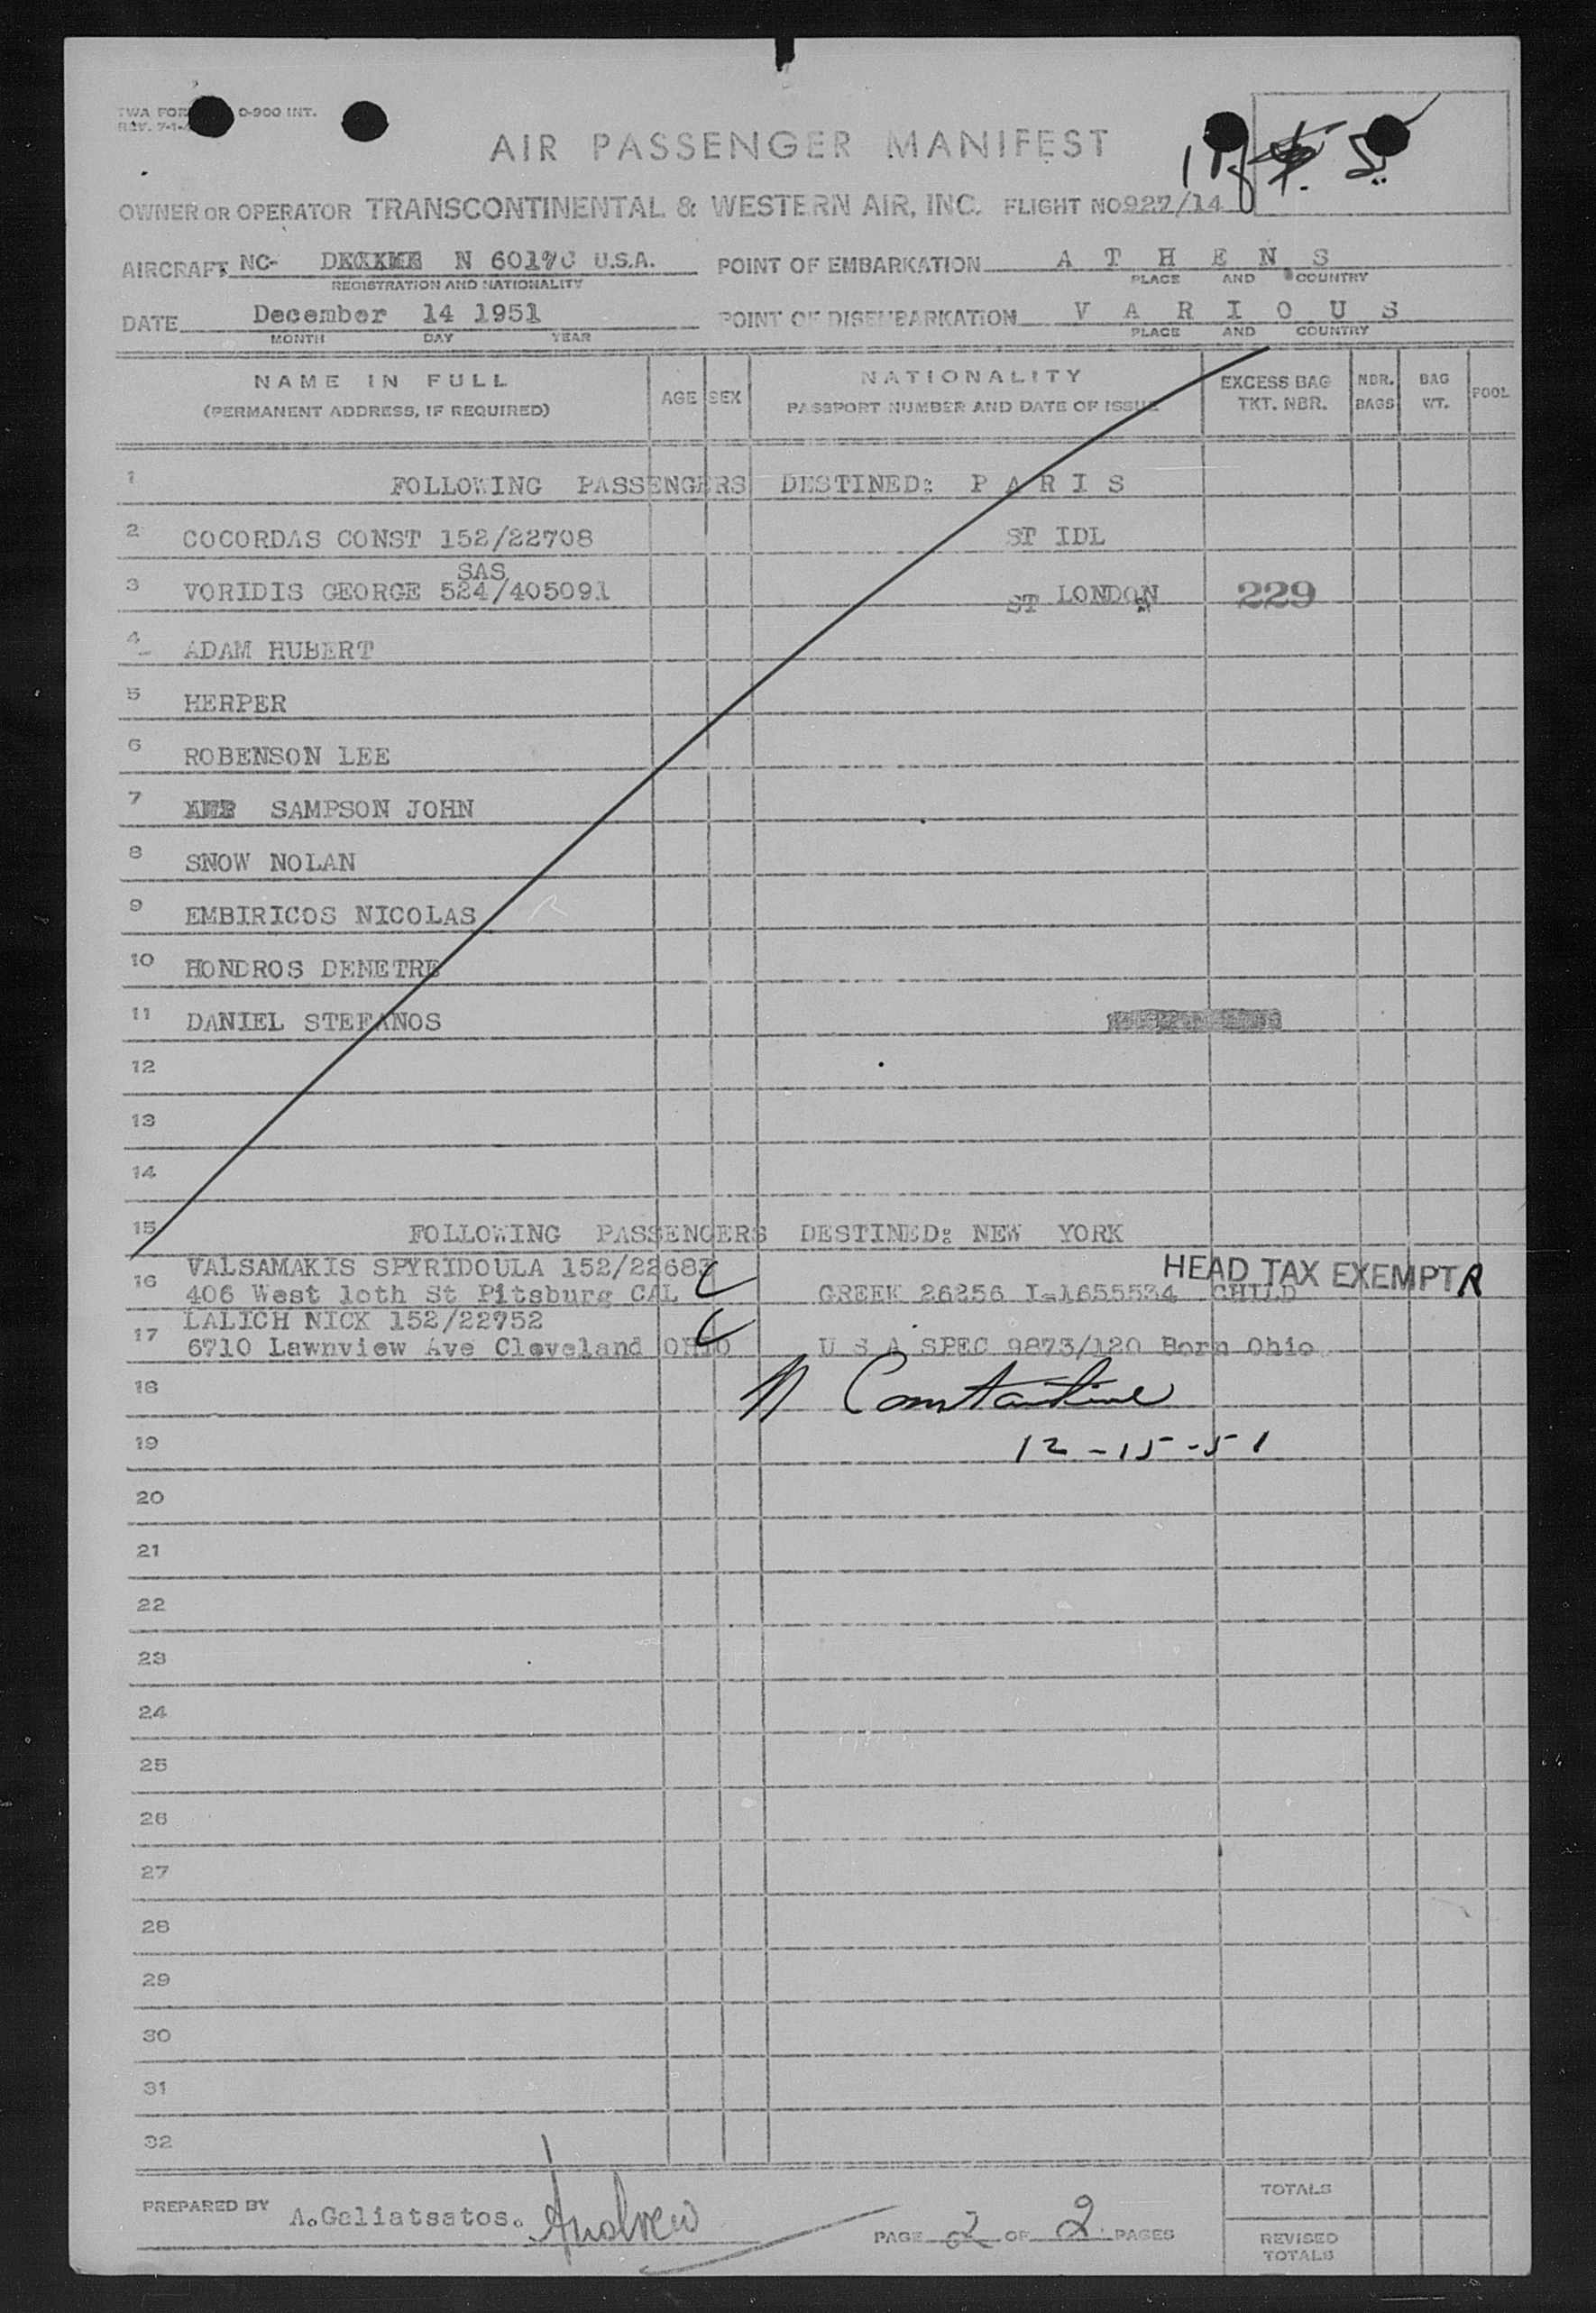 TWA FOR 0-900 INT.
REV. 7-1-4
AIR PASSENGER MANIFEST
OWNER OR OPERATOR TRANSCONTINENTAL & WESTERN AIR, INC. FLIGHT NO 927/14
AIRCRAFT NC- N 6017C U.S.A. POINT OF EMBARKATION A T H E N S
REGISTRATION AND NATIONALITY PLACE AND COUNTRY
DATE December 14 1951 POINT OF DISEMBARKATION V A R I O U S
MONTH DAY YEAR PLACE AND COUNTRY
NAME IN FULL AGE SEX NATIONALITY EXCESS BAG NBR. BAG POOL
(PERMANENT ADDRESS, IF REQUIRED) PASSPORT NUMBER AND DATE OF ISSUE TKT. NBR. BAGS WT.
1 FOLLOWING PASSENGERS DESTINED: P A R I S
2 COCORDAS CONST 152/22708 ST IDL
SAS
3 VORIDIS GEORGE 524/405091 ST LONDON 229
4 ADAM HUBERT
5 HERPER
6 ROBENSON LEE
7 SAMPSON JOHN
8 SNOW NOLAN
9 EMBIRICOS NICOLAS
10 HONDROS DEMETRE
11 DANIEL STEFANOS
12
13
14
15 FOLLOWING PASSENGERS DESTINED: NEW YORK
VALSAMAKIS SPYRIDOULA 152/22683 HEAD TAX EXEMPT R
16 406 West 10th St Pitsburg CAL GREEK 26256 I-1655534 CHILD
LALICH NICK 152/22752
17 6710 Lawnview Ave Cleveland OHIO U S A SPEC 9873/120 Born Ohio
18 N Constantine
19 12-15-51
20
21
22
23
24
25
26
27
28
29
30
31
32
PREPARED BY A.Galiatsatos. Andrew PAGE 2 OF 2 PAGES
TOTALS
REVISED
TOTALS